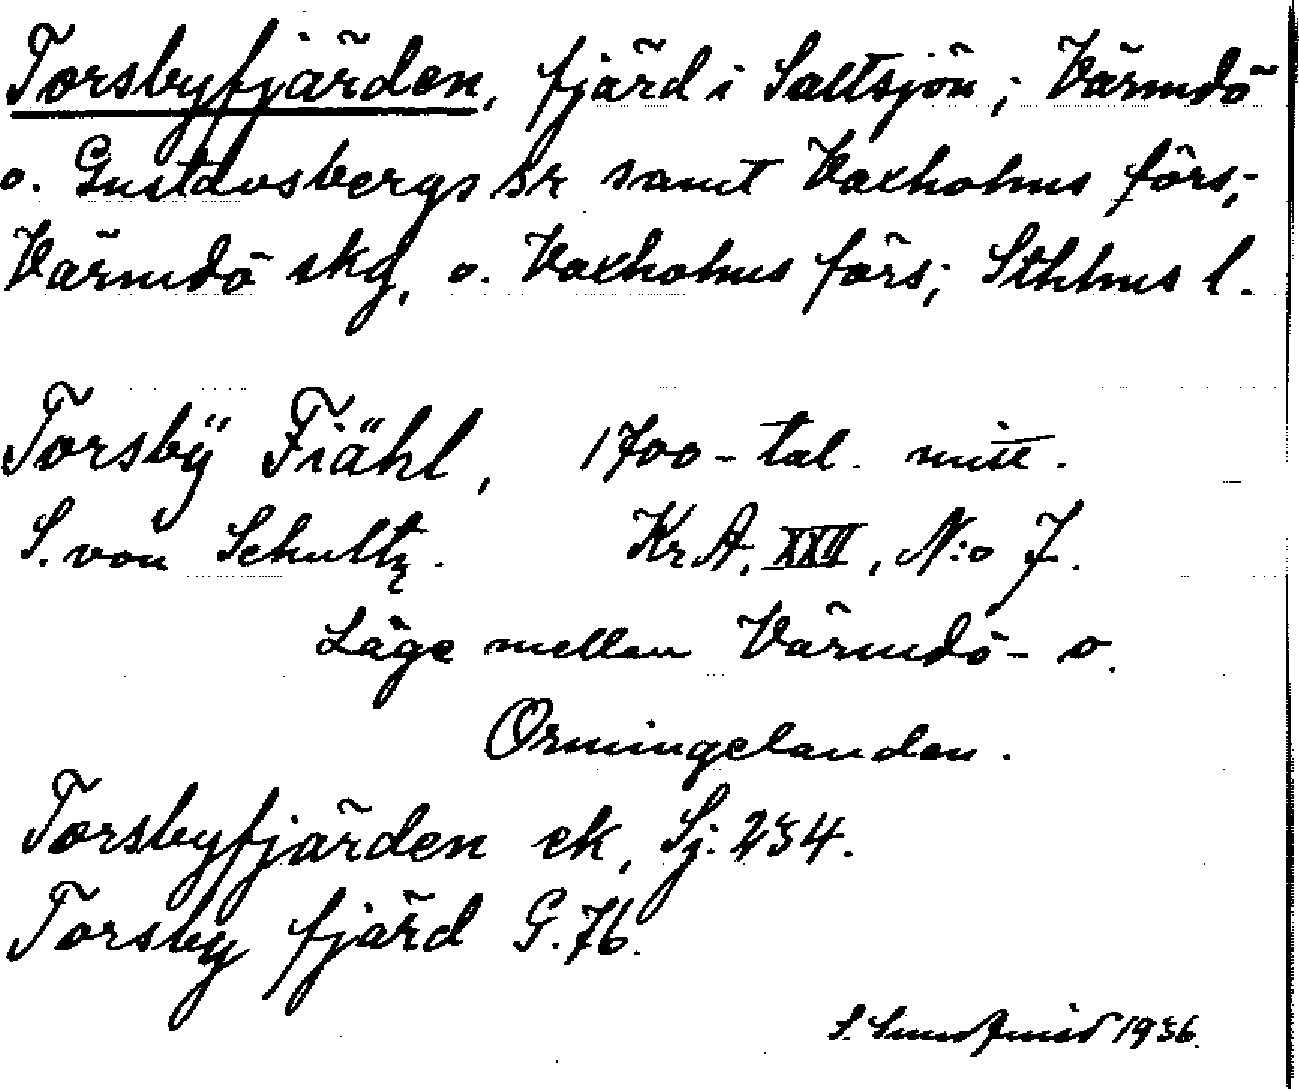 Torsbyfjärden, fjärd i Saltsjön; Värmdö
o. Gustavsbergs sr samt Vaxholms förs;
Värmdö skg, o. Vaxholms förs; Sthlms l.
Torsbÿ Fiähl, 1700-tal. mitt.
S. von Schultz. Kr A, XXII, N:o 7.
Läge mellan Värmdö- o.
Ormingelanden.
Torsbyfjärden ek, Sj: 234.
Torsby fjärd G. 76.
S. 1936.